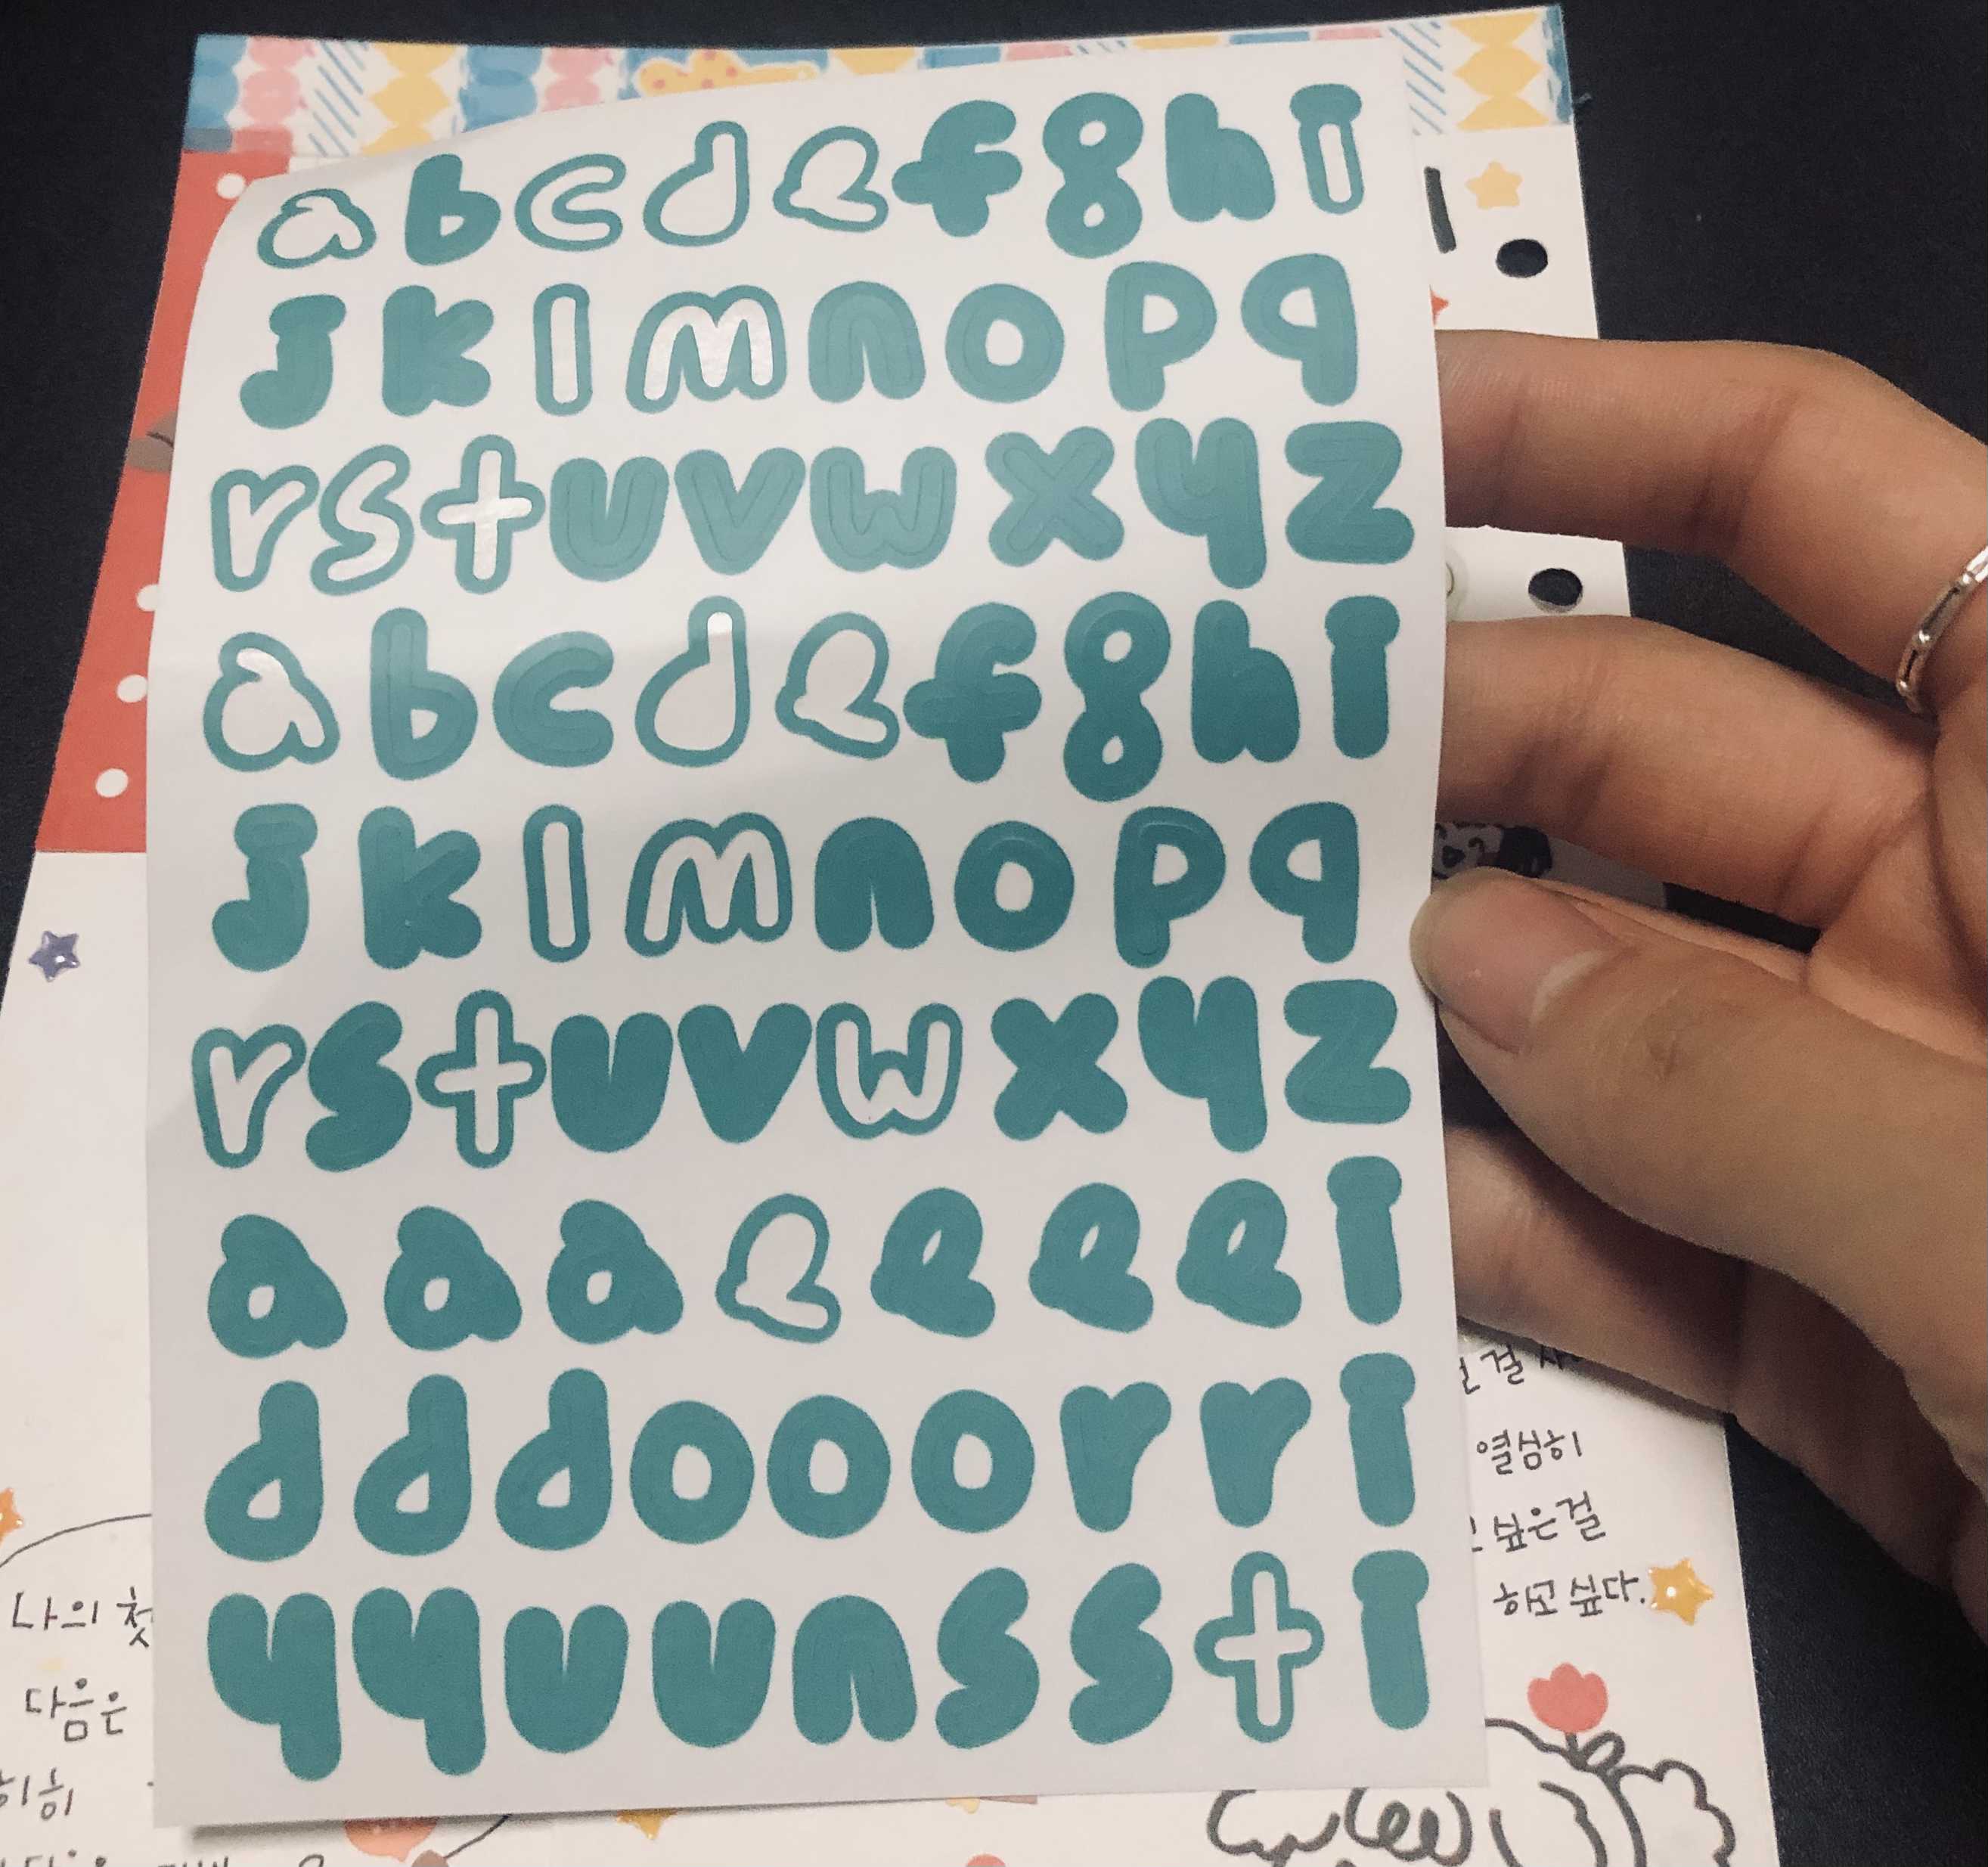 a b c d e f g h i
j k l m n o p q
r s t u v w x y z
a b c d e f g h i
j k l m n o p q
r s t u v w x y z
a a a e e e e i
d d d o o o r r i
y y u u n s s t i
걸
열심히
싶은걸
하고 싶다.
나의 첫
다음은
히히